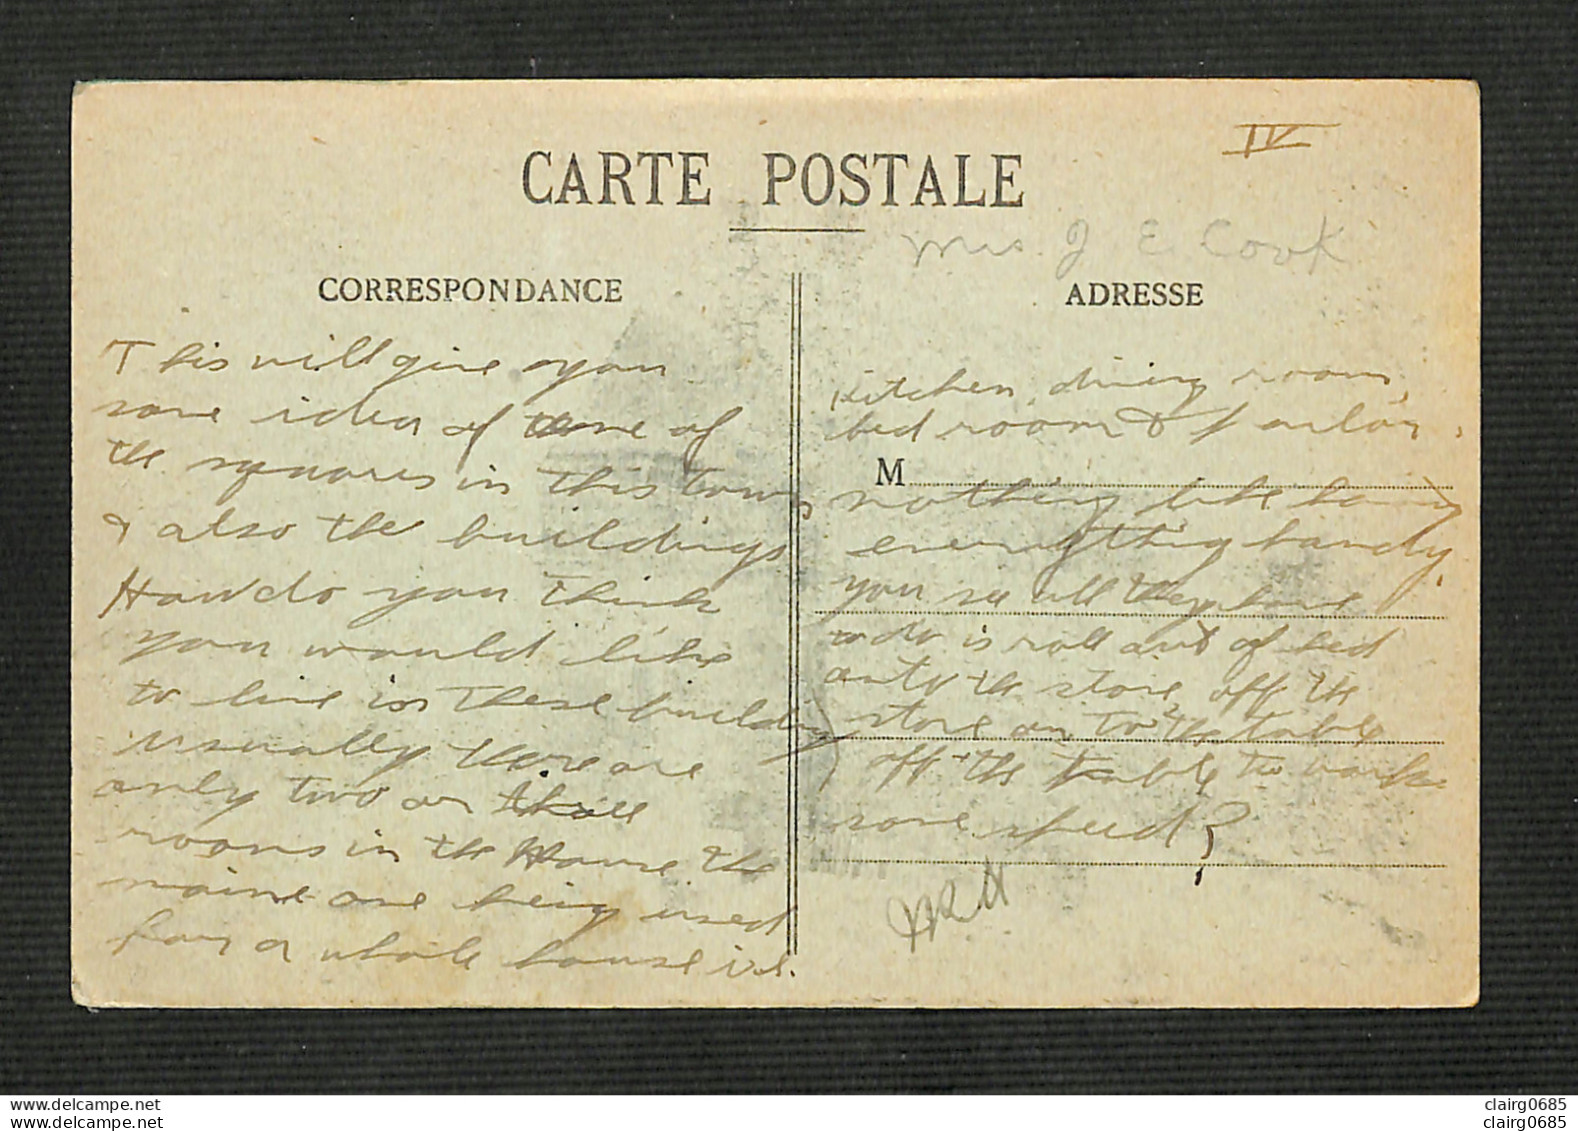 IV
CARTE POSTALE
Mrs J E Cook
CORRESPONDANCE
ADRESSE
This will give you
some idea of some of
the squares in this town
& also the buildings
How do you think
you would like
to live in these building
usually there are
only two or three
rooms in the House the
maine one being used
for a whole house i.e.
Kitchen, dining room,
bed room & parlor.
M
nothing like having
everything handy,
you see all they have
to do is roll out of bed
onto the stove, off the
stove on to the table
off the table to
some speed?
delcampe.net
clairg0685
delcampe.net
clairg0685